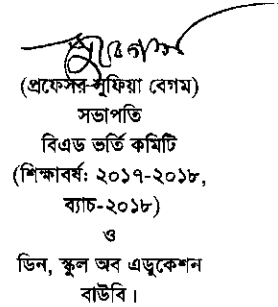 (প্রফেসর সুফিয়া বেগম)
সভাপতি
বিএড ভর্তি কমিটি
(শিক্ষাবর্ষ: ২০১৭-২০১৮,
ব্যাচ-২০১৮)
ও
ডিন, স্কুল অব এডুকেশন
বাউবি।